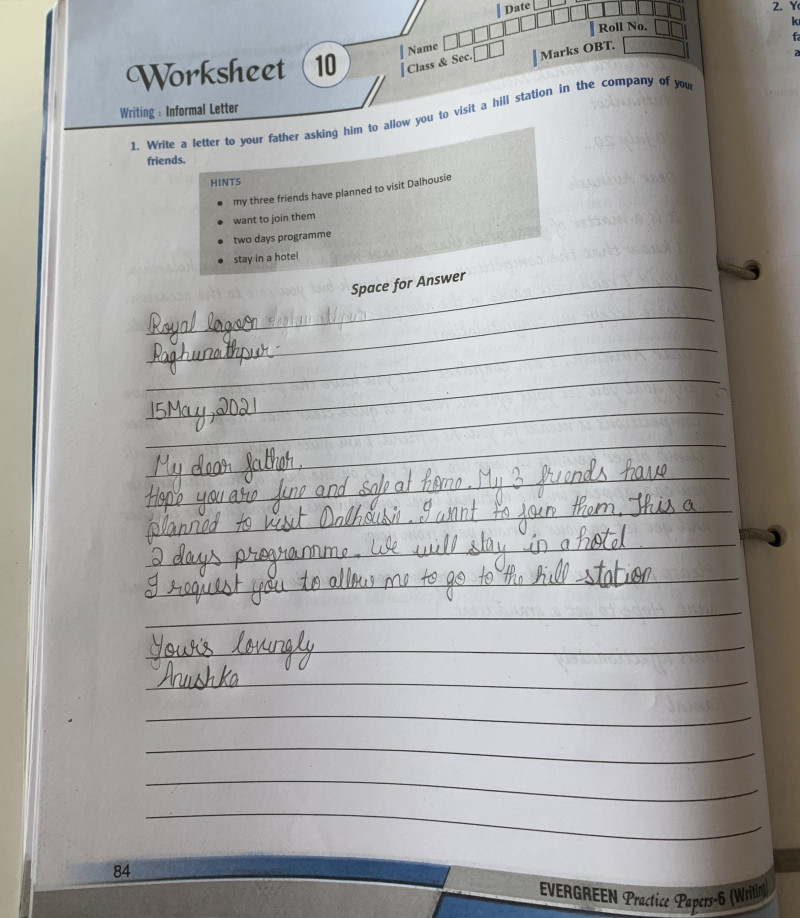 Date
Name
Roll No.
Class & Sec.
Marks OBT.
Worksheet 10
Writing : Informal Letter
2. Y
1. Write a letter to your father asking him to allow you to visit a hill station in the company of your
friends.
HINTS
• my three friends have planned to visit Dalhousie
• want to join them
• two days programme
• stay in a hotel
Space for Answer
Royal lagoon
Raghunathpur
15 May, 2021
My dear father,
Hope you are fine and safe at home. My 3 friends have
planned to visit Dalhousi. I want to join them. This a
2 days programme. We will stay in a hotel
I request you to allow me to go to the hill station
Your's lovingly
Anushka
84
EVERGREEN Practice Papers-6 (Writing)